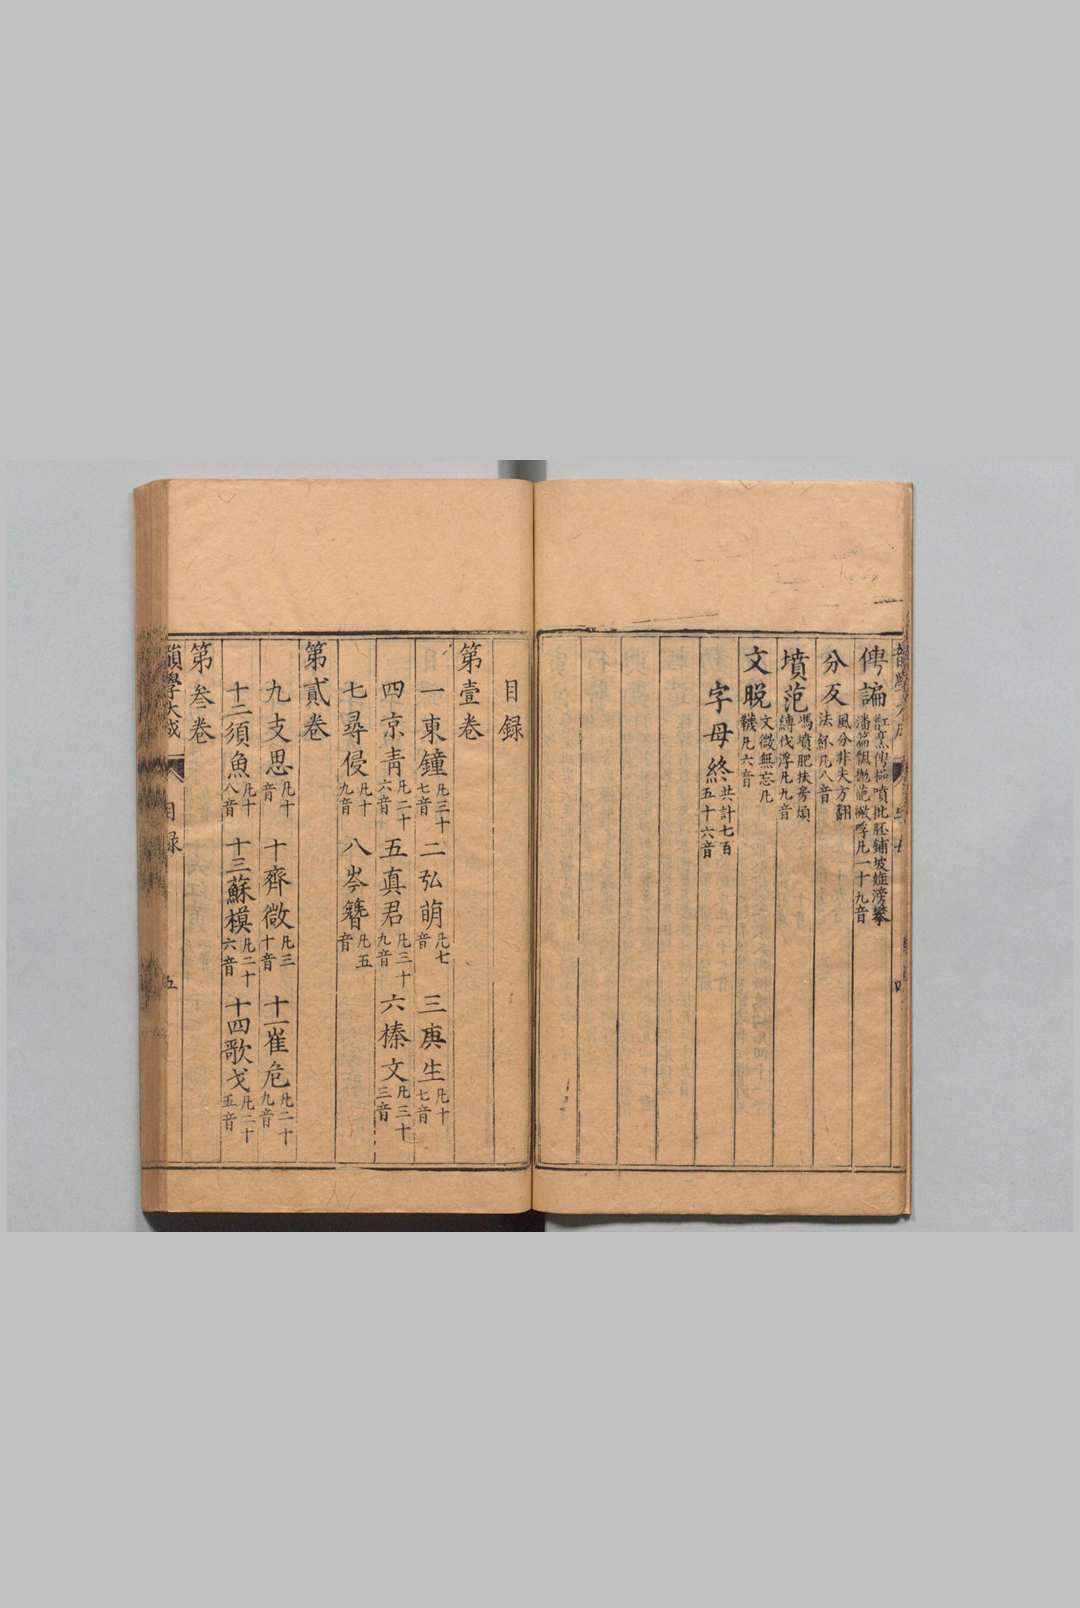 俜諞
砏烹俜砰噴批胚鋪坡姂滂攀
潘篇飄拋葩撇呼凡一十九音
分反
風分非夫方翻
法紑凡八音
墳范
馮墳肥扶房煩
縛伐浮凡九音
文脫
文微無忘凡
韈凡六音
字母終
共計七百
五十六音
目録
第壹卷
一東鐘 凡三十七音 二弘萌 凡七音 三庚生 凡十七音
四京青 凡二十六音 五真君 凡三十九音 六榛文 凡三十三音
七尋侵 凡十九音 八岑簪 凡五音
第貳卷
九支思 凡十音 十齊微 凡三十音 十一崔危 凡二十九音
十二須魚 凡十八音 十三蘇模 凡二十六音 十四歌戈 凡二十五音
第叁卷
韻學大成
目録
五